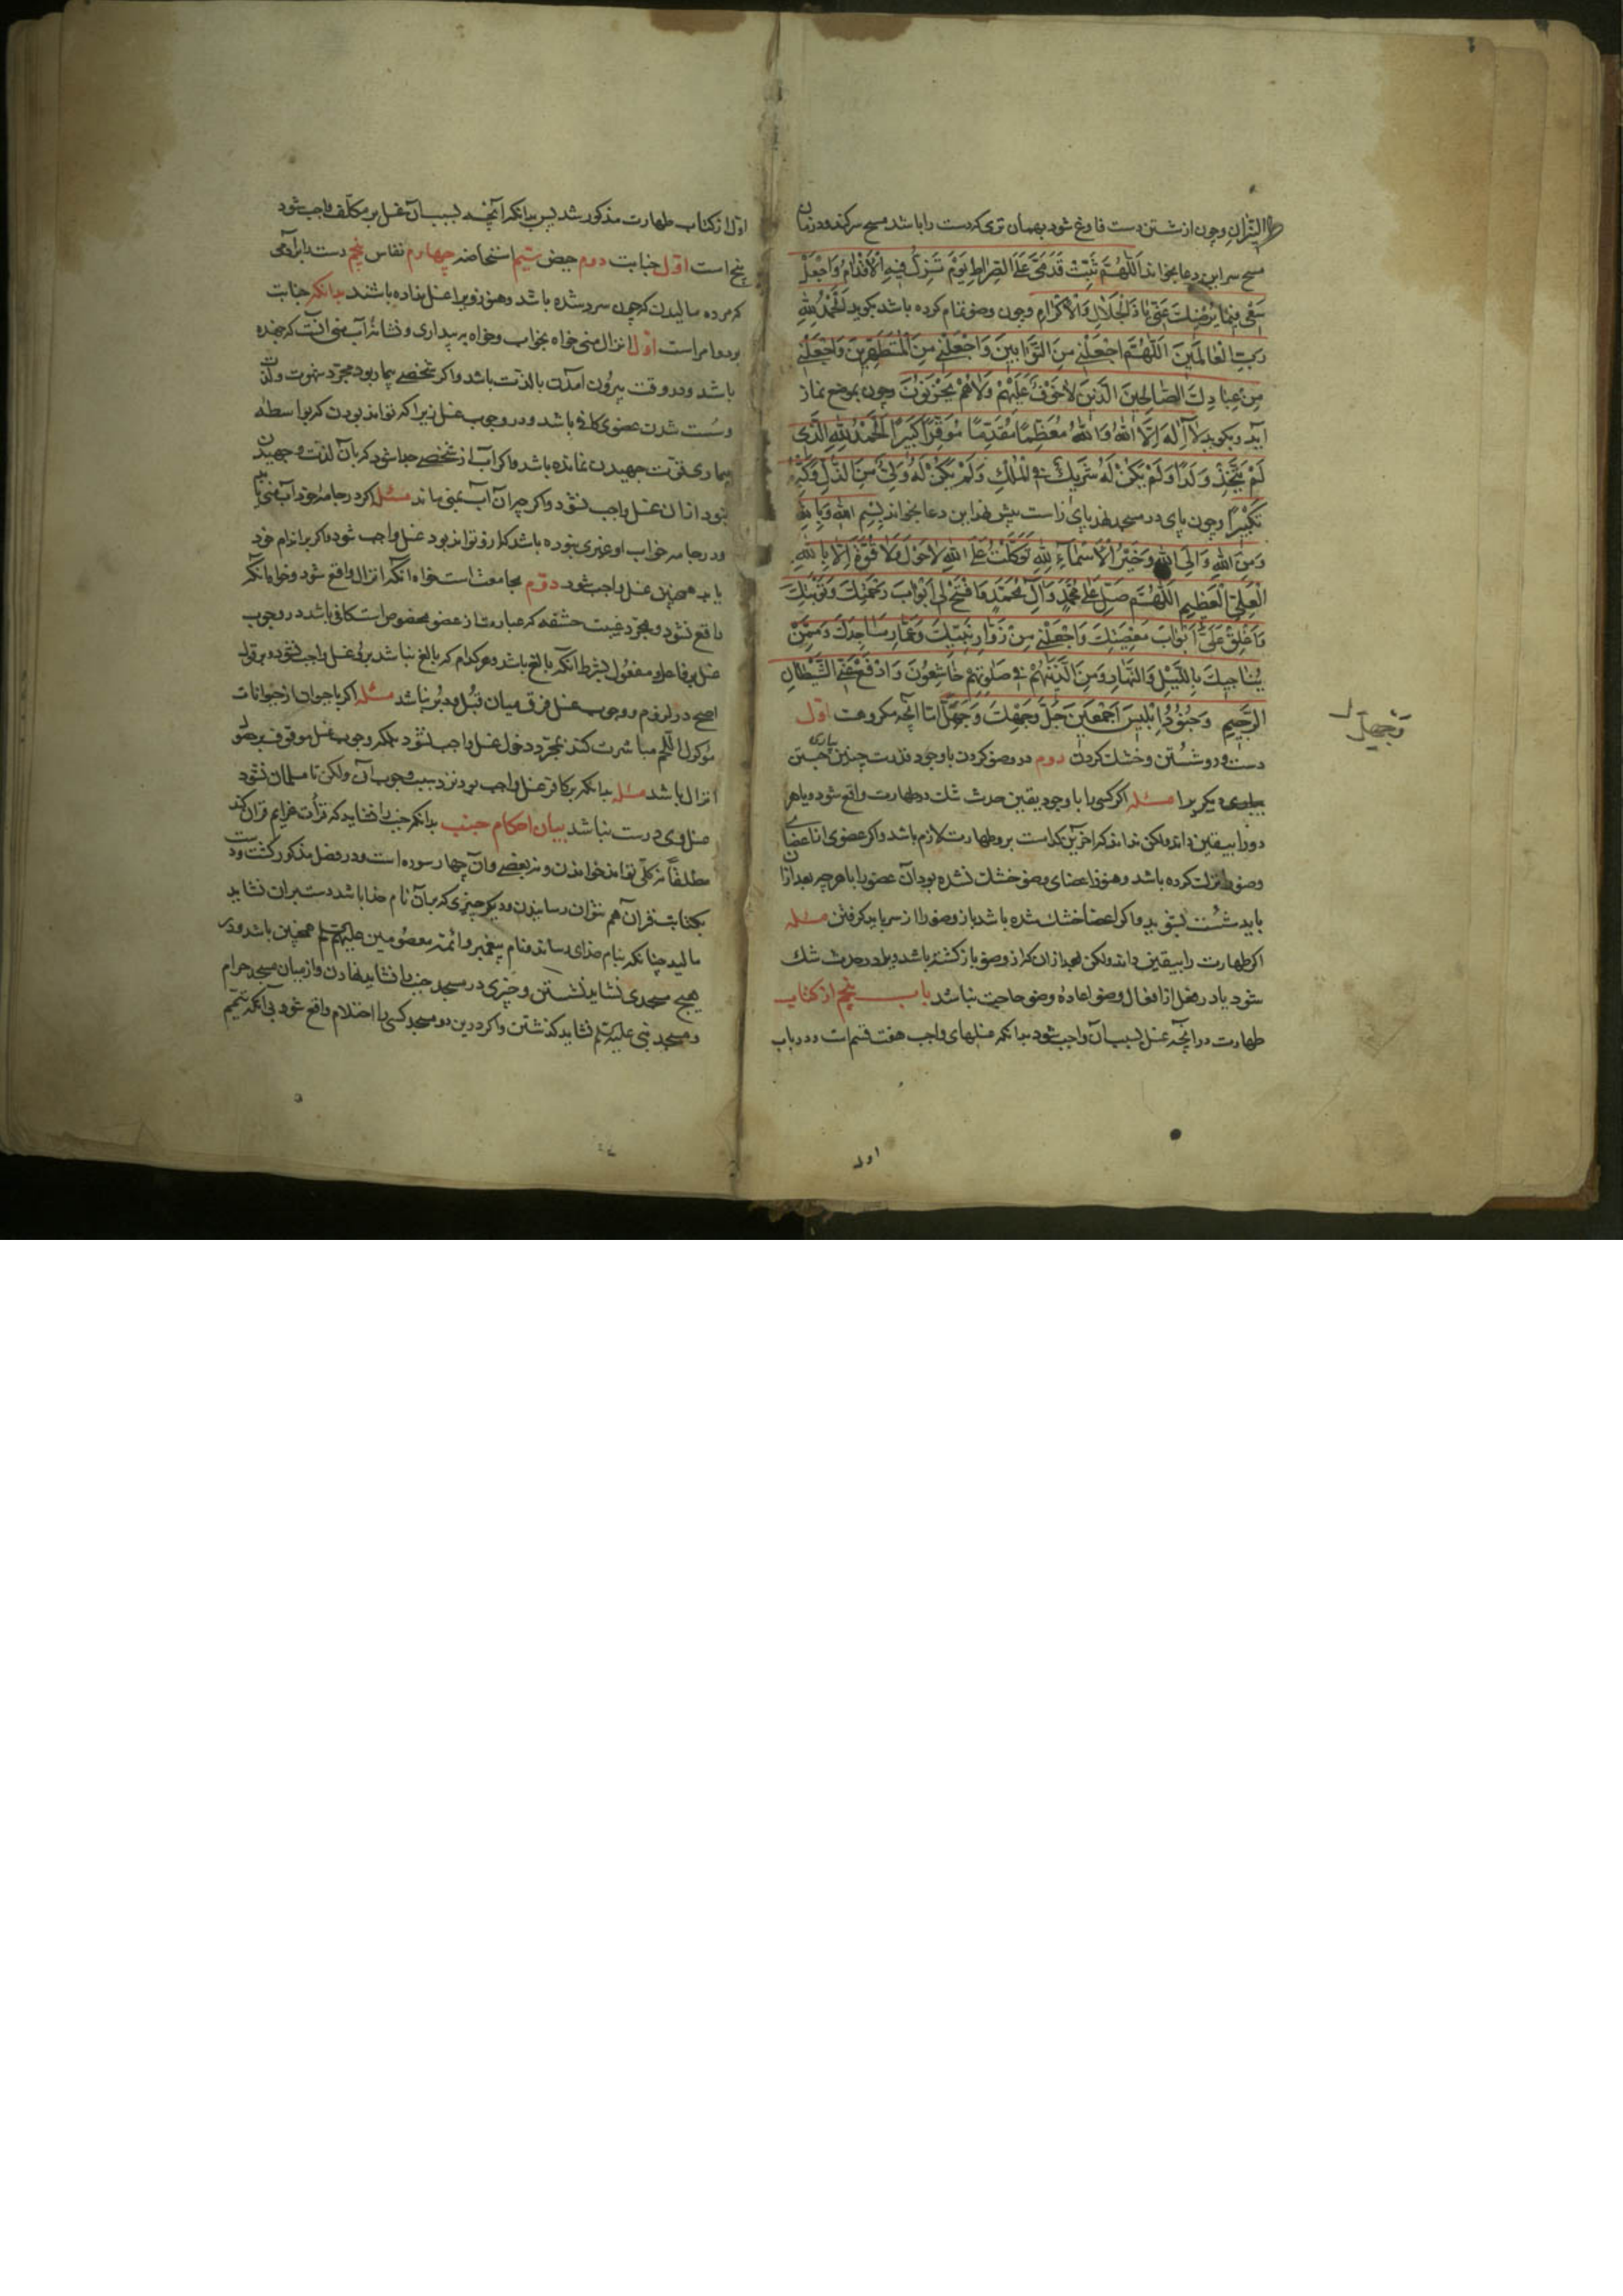 النیران و چون از شستن دست فارغ شود بهمان تری که دست را باشد مسح سر کند و در زمان
مسح سر این دعا بخواند اَللّٰهُمَّ ثَبِّتْ قَدَمَیَّ عَلَی الصِّراطِ یَوْمَ تَزِلُّ فیهِ الْاَقْدامُ وَاجْعَلْ
سَعْیی فیما یُرْضیكَ عَنّی یا ذَا الْجَلالِ وَالْاِکْرامِ و چون وضو تمام کرده باشد بکوید اَلْحَمْدُ لِلّٰهِ
رَبِّ الْعالَمینَ اَللّٰهُمَّ اجْعَلْنی مِنَ التَّوّابینَ وَاجْعَلْنی مِنَ الْمُتَطَهِّرینَ وَاجْعَلْنی
مِنْ عِبادِكَ الصّالِحینَ الَّذینَ لاخَوْفٌ عَلَیْهِمْ وَلاهُمْ یَحْزَنُونَ و چون بموضع نماز
آید و بکوید لا اِلٰهَ اِلَّا اللهُ وَاللهُ مُعَظَّماً مُقَدَّماً مُوَقَّراً کَبیراً اَلْحَمْدُ لِلّٰهِ الَّذی
لَمْ یَتَّخِذْ وَلَداً وَلَمْ یَکُنْ لَهُ شَریكٌ فِی الْمُلْكِ وَلَمْ یَکُنْ لَهُ وَلِیٌّ مِنَ الذُّلِّ وَکَبِّرْهُ
تَکْبیراً و چون پای در مسجد نهد پای راست پیش نهد این دعا بخواند بِسْمِ اللهِ وَبِاللهِ
وَمِنَ اللهِ وَاِلَی اللهِ وَخَیْرُ الْاَسْماءِ لِلّٰهِ تَوَکَّلْتُ عَلَی اللهِ لاحَوْلَ وَلا قُوَّةَ اِلّا بِاللهِ
الْعَلِیِّ الْعَظیمِ اَللّٰهُمَّ صَلِّ عَلی مُحَمَّدٍ وَآلِ مُحَمَّدٍ وَافْتَحْ لی اَبْوابَ رَحْمَتِكَ وَتَوْبَتِكَ
وَاَغْلِقْ عَنّی اَبْوابَ مَعْصِیَتِكَ وَاجْعَلْنی مِنْ زُوّارِ بَیْتِكَ وَعُمّارِ مَساجِدِكَ وَمِمَّنْ
یُناجیكَ بِاللَّیْلِ وَالنَّهارِ وَمِنَ الَّذینَ هُمْ فی صَلوتِهِمْ خاشِعُونَ وَادْفَعْ عَنِّی الشَّیْطانَ
الرَّجیمَ وَجُنُودَ اِبْلیسَ اَجْمَعینَ اما آنچه مکروهست اول
دست و رو شستن و خشك کردن دوم در وضو کردن با وجود قدرت چنین یاری
دیکر را مسئله اکر کسی را با وجود یقین حدث شك در طهارت واقع شود و یا هر
دو را بیقین داند ولکن نداند که آخرین کدامست برو طهارت لازم باشد و اکر عضوی از اعضای
وضو ترك کرده باشد و هنوز اعضای وضو خشك نشده بود آن عضو را با هرچه بعد از آن
باید شست بشوید و اکر اعضا خشك شده باشد باز وضو را از سر باید کرفتن مسئله
اکر طهارت را بیقین داند ولکن بعد از آن که از وضو باز کشته باشد ویرا در حدث شك
شود یا در فعل از افعال وضو اعادهٔ وضو حاجت نباشد باب پنجم از کتاب
طهارت در آنچه غسل بسبب آن واجب شود بدانکه غسلهای واجب هفت قسم است و در باب
اول
وَتجهیل
اول از کتاب طهارت مذکور شد پس بدانکه آنچه بسبب آن غسل بر مکلّف واجب شود
پنج است اوّل جنابت دوم حیض سیّم استحاضه چهارم نفاس پنجم دست بر آدمی
که مرده مالیدن که چون سرد شده باشد و هنوز ویرا غسل نداده باشند بدانکه جنابت
بر دو امر است اول انزال منی خواه بخواب و خواه به بیداری و نشانهٔ آب منی آنست که جهنده
باشد و در وقت بیرون آمدن با لذّت باشد و اکر شخصی بیمار بود مجرّد شهوت و لذّت
و سست شدن عضوی کافی باشد و در وجوب غسل زیرا که تواند بودن که بواسطهٔ
بیماری قوّت جهیدن نمانده باشد و اکر آب از شخصی جدا شود که با آن لذّت و جهیدن
نبود از آن غسل واجب نشود و اکر چه آن آب بمنی ماند مسئله اکر در جامهٔ خود آب منی یابد
و در جامه خواب او غیری نبوده باشد که ازو تواند بود غسل واجب شود و اکر بر اندام خود
یابد همچنین غسل واجب شود دوّم مجامعت است خواه آنکه انزال واقع شود و خواه آنکه
واقع نشود و بمجرّد غیبت حشفه که عبارت از عضو مخصوص است کافی باشد در وجوب
غسل بر فاعل و مفعول بشرط آنکه بالغ باشد و هر کدام که بالغ نباشد بر وی غسل واجب نشود و بر قول
اصح در لزوم و وجوب غسل فرق میان قُبُل و دُبُر نباشد مسئله اکر با حیوان از حیوانات
مأکول اللحم مباشرت کند بمجرّد دخول غسل واجب نشود بلکه وجوب غسل موقوف بر حصول
انزال باشد مسئله بدانکه بر کافر غسل واجب بود نزد سبب وجوب آن ولکن تا مسلمان نشود
غسل وی درست نباشد بیان احکام جنب بدانکه جنب را نشاید که قرأت عزایم قرآن کند
مطلقاً نه کلّی تواند خواندن و نه بعضی و آن چهار سوره است و در فصل مذکور کشت و دست
بکتابت قرآن هم نتوان رسانیدن و دیکر چیزی که بر آن نام خدا باشد دست بر آن نشاید
مالید چنانکه بنام خدای رساند و نام پیغمبر و ائمّهٔ معصومین علیهم همچنین باشد و در
هیچ مسجدی نشاید نشستن و چیزی در مسجد جنب را نشاید نهادن و از میان مسجد حرام
و مسجد نبی علیه نشاید کذشتن و اکر درین دو مسجد کسی را احتلام واقع شود بی آنکه تیمّم